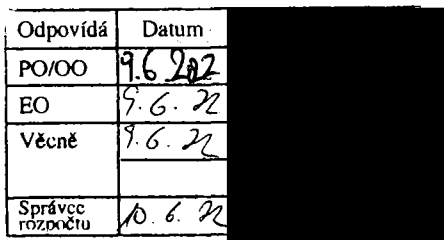 Odpovídá Datum
PO/OO 9.6 202
EO 9.6. 22
Věcně 9.6. 22
Správce rozpočtu 10. 6. 22